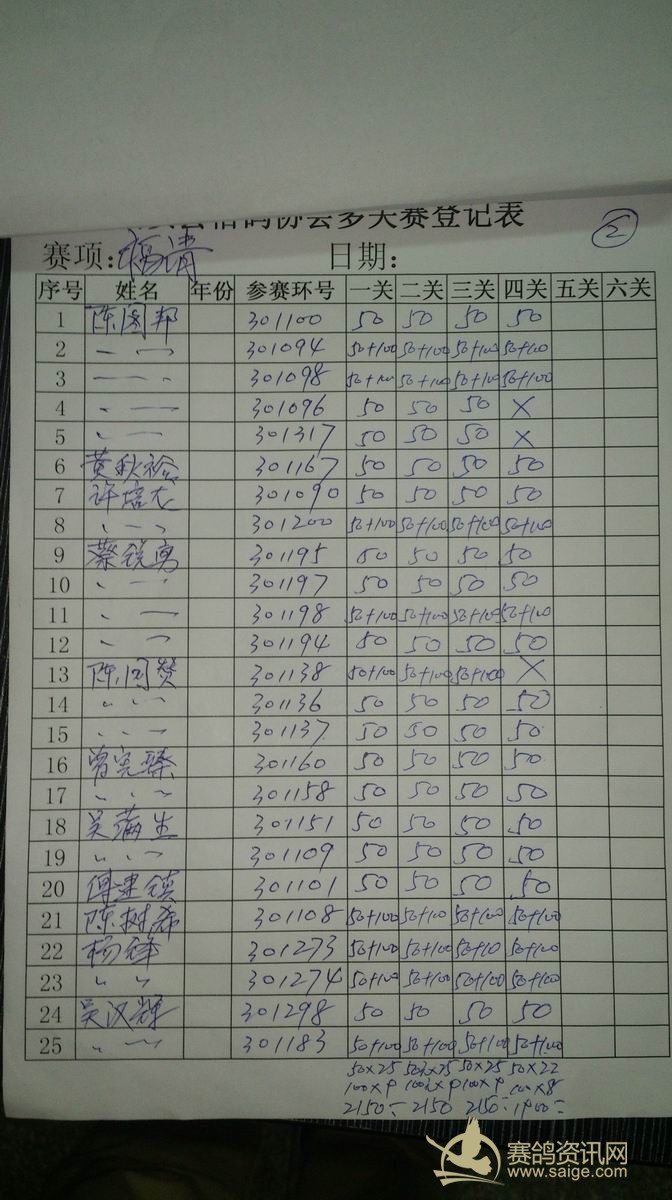 信鸽协会多关赛登记表
②
赛项:福清 日期:
序号 姓名 年份 参赛环号 一关 二关 三关 四关 五关 六关
1 陈国邦 301100 50 50 50 50
2 〃 301094 50+100 50+100 50+100 50+100
3 〃 301098 50+100 50+100 50+100 50+100
4 〃 301096 50 50 50 X
5 〃 301317 50 50 50 X
6 黄秋 301167 50 50 50 50
7 许培 301090 50 50 50 50
8 〃 301200 50+100 50+100 50+100 50+100
9 蔡锐勇 301195 50 50 50 50
10 〃 301197 50 50 50 50
11 〃 301198 50+100 50+100 50+100 50+100
12 〃 301194 50 50 50 50
13 陈国赞 301138 50+100 50+100 50+100 X
14 〃 301136 50 50 50 50
15 〃 301137 50 50 50 50
16 曾宪 301160 50 50 50 50
17 〃 301158 50 50 50 50
18 吴满生 301151 50 50 50 50
19 〃 301109 50 50 50 50
20 傅建镇 301101 50 50 50 50
21 陈树希 301108 50+100 50+100 50+100 50+100
22 杨锋 301273 50+100 50+100 50+10 50+100
23 〃 301274 50+100 50+100 50+100 50+100
24 吴汉辉 301298 50 50 50 50
25 〃 301183 50+100 50+100 50+100 50+100
50×25 50×25 50×25 50×22
100×9 100×9 100×9 100×8
2150= 2150 2150= 1900=
赛鸽资讯网
www.saige.com